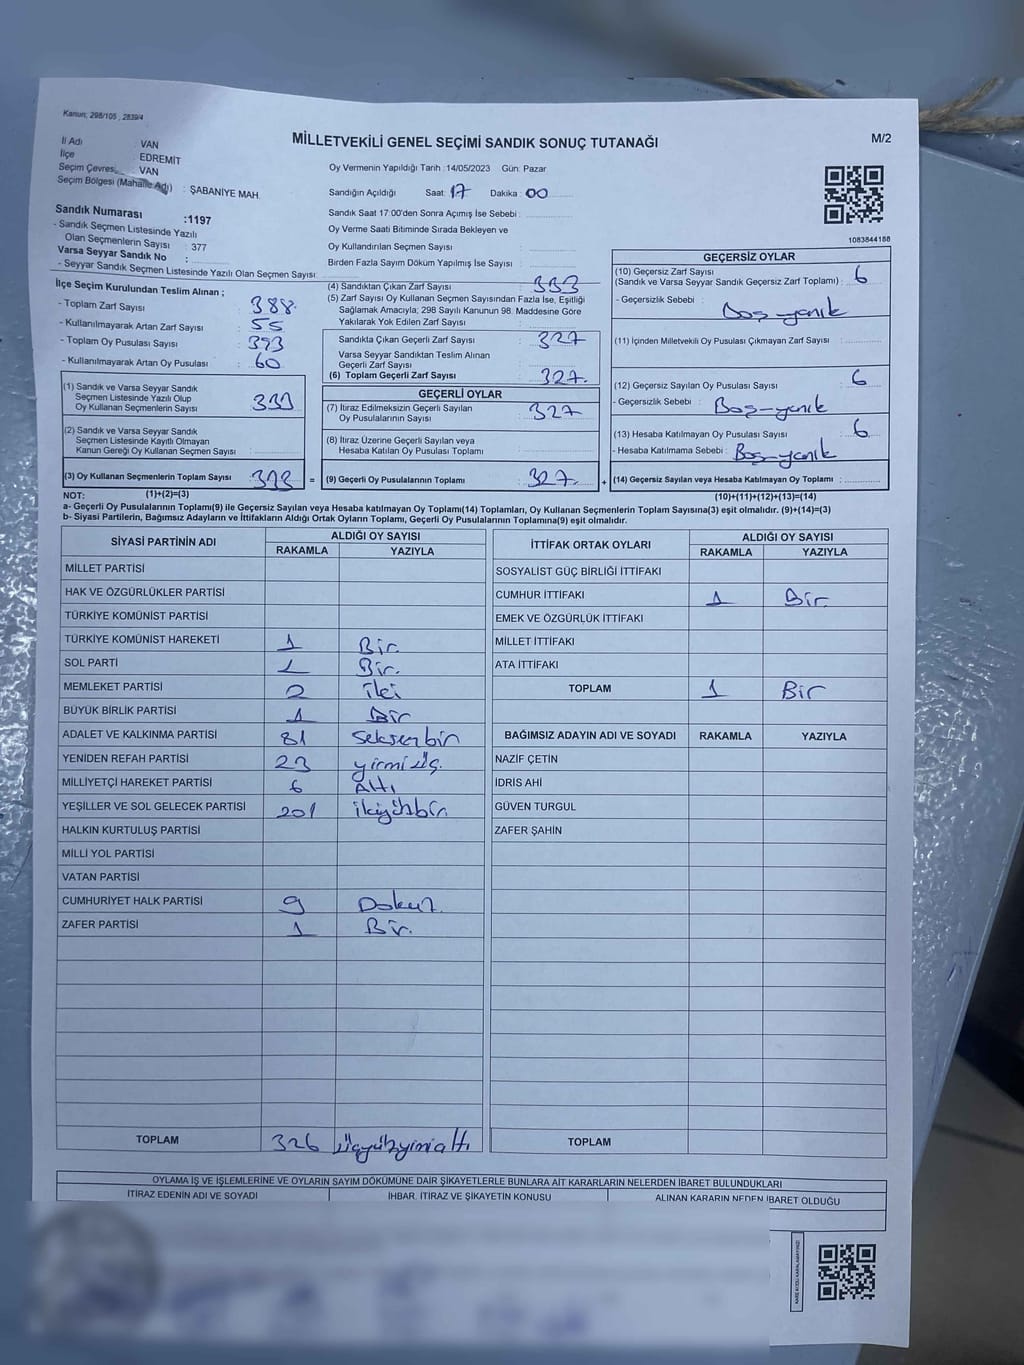 Kanun; 298/105 , 2839/4
MİLLETVEKİLİ GENEL SEÇİMİ SANDIK SONUÇ TUTANAĞI
M/2
İl Adı : VAN
İlçe : EDREMİT
Seçim Çevres : VAN
Seçim Bölgesi (Mahalle Adı) : ŞABANİYE MAH.
Oy Vermenin Yapıldığı Tarih :14/05/2023 Gün: Pazar
Sandığın Açıldığı Saat: 17 Dakika : 00
Sandık Saat 17:00'den Sonra Açımış İse Sebebi :
Oy Verme Saati Bitiminde Sırada Bekleyen ve
Oy Kullandırılan Seçmen Sayısı :
Birden Fazla Sayım Döküm Yapılmış İse Sayısı :
1083844188
Sandık Numarası :1197
- Sandık Seçmen Listesinde Yazılı
Olan Seçmenlerin Sayısı : 377
Varsa Seyyar Sandık No :
- Seyyar Sandık Seçmen Listesinde Yazılı Olan Seçmen Sayısı:
İlçe Seçim Kurulundan Teslim Alınan ;
- Toplam Zarf Sayısı : 388
- Kullanılmayarak Artan Zarf Sayısı : 55
- Toplam Oy Pusulası Sayısı : 393
- Kullanılmayarak Artan Oy Pusulası : 60
(1) Sandık ve Varsa Seyyar Sandık
Seçmen Listesinde Yazılı Olup
Oy Kullanan Seçmenlerin Sayısı : 333
(2) Sandık ve Varsa Seyyar Sandık
Seçmen Listesinde Kayıtlı Olmayan
Kanun Gereği Oy Kullanan Seçmen Sayısı :
(3) Oy Kullanan Seçmenlerin Toplam Sayısı
(1)+(2)=(3)
(4) Sandıktan Çıkan Zarf Sayısı : 333
(5) Zarf Sayısı Oy Kullanan Seçmen Sayısından Fazla İse, Eşitliği
Sağlamak Amacıyla; 298 Sayılı Kanunun 98. Maddesine Göre
Yakılarak Yok Edilen Zarf Sayısı :
Sandıkta Çıkan Geçerli Zarf Sayısı : 327
Varsa Seyyar Sandıktan Teslim Alınan
Geçerli Zarf Sayısı :
(6) Toplam Geçerli Zarf Sayısı : 327.
GEÇERLİ OYLAR
(7) İtiraz Edilmeksizin Geçerli Sayılan
Oy Pusulalarının Sayısı : 327
(8) İtiraz Üzerine Geçerli Sayılan veya
Hesaba Katılan Oy Pusulası Toplamı :
= (9) Geçerli Oy Pusulalarının Toplamı : 327.
GEÇERSİZ OYLAR
(10) Geçersiz Zarf Sayısı
(Sandık ve Varsa Seyyar Sandık Geçersiz Zarf Toplamı) : 6
- Geçersizlik Sebebi : Boş-yanık
(11) İçinden Milletvekili Oy Pusulası Çıkmayan Zarf Sayısı :
(12) Geçersiz Sayılan Oy Pusulası Sayısı : 6
- Geçersizlik Sebebi : Boş-yanık
(13) Hesaba Katılmayan Oy Pusulası Sayısı : 6
- Hesaba Katılmama Sebebi : Boş-yanık
+ (14) Geçersiz Sayılan veya Hesaba Katılmayan Oy Toplamı :
(10)+(11)+(12)+(13)=(14)
NOT:
a- Geçerli Oy Pusulalarının Toplamı(9) ile Geçersiz Sayılan veya Hesaba katılmayan Oy Toplamı(14) Toplamları, Oy Kullanan Seçmenlerin Toplam Sayısına(3) eşit olmalıdır. (9)+(14)=(3)
b- Siyasi Partilerin, Bağımsız Adayların ve İttifakların Aldığı Ortak Oyların Toplamı, Geçerli Oy Pusulalarının Toplamına(9) eşit olmalıdır.
SİYASİ PARTİNİN ADI ALDIĞI OY SAYISI
RAKAMLA YAZIYLA
MİLLET PARTİSİ
HAK VE ÖZGÜRLÜKLER PARTİSİ
TÜRKİYE KOMÜNİST PARTİSİ
TÜRKİYE KOMÜNİST HAREKETİ 1 Bir
SOL PARTİ 1 Bir.
MEMLEKET PARTİSİ 2 iki
BÜYÜK BİRLİK PARTİSİ 1 Bir
ADALET VE KALKINMA PARTİSİ 81 Seksenbir
YENİDEN REFAH PARTİSİ 23 yirmiüç.
MİLLİYETÇİ HAREKET PARTİSİ 6 Altı
YEŞİLLER VE SOL GELECEK PARTİSİ 201 ikiyüzbir
HALKIN KURTULUŞ PARTİSİ
MİLLİ YOL PARTİSİ
VATAN PARTİSİ
CUMHURİYET HALK PARTİSİ 9 Dokuz.
ZAFER PARTİSİ 1 Bir.
TOPLAM 326 üçyüzyirmialtı
İTTİFAK ORTAK OYLARI ALDIĞI OY SAYISI
RAKAMLA YAZIYLA
SOSYALİST GÜÇ BİRLİĞİ İTTİFAKI
CUMHUR İTTİFAKI 1 Bir.
EMEK VE ÖZGÜRLÜK İTTİFAKI
MİLLET İTTİFAKI
ATA İTTİFAKI
TOPLAM 1 Bir
BAĞIMSIZ ADAYIN ADI VE SOYADI RAKAMLA YAZIYLA
NAZİF ÇETİN
İDRİS AHİ
GÜVEN TURGUL
ZAFER ŞAHİN
TOPLAM
OYLAMA İŞ VE İŞLEMLERİNE VE OYLARIN SAYIM DÖKÜMÜNE DAİR ŞİKAYETLERLE BUNLARA AİT KARARLARIN NELERDEN İBARET BULUNDUKLARI
İTİRAZ EDENİN ADI VE SOYADI İHBAR, İTİRAZ VE ŞİKAYETİN KONUSU ALINAN KARARIN NEDEN İBARET OLDUĞU